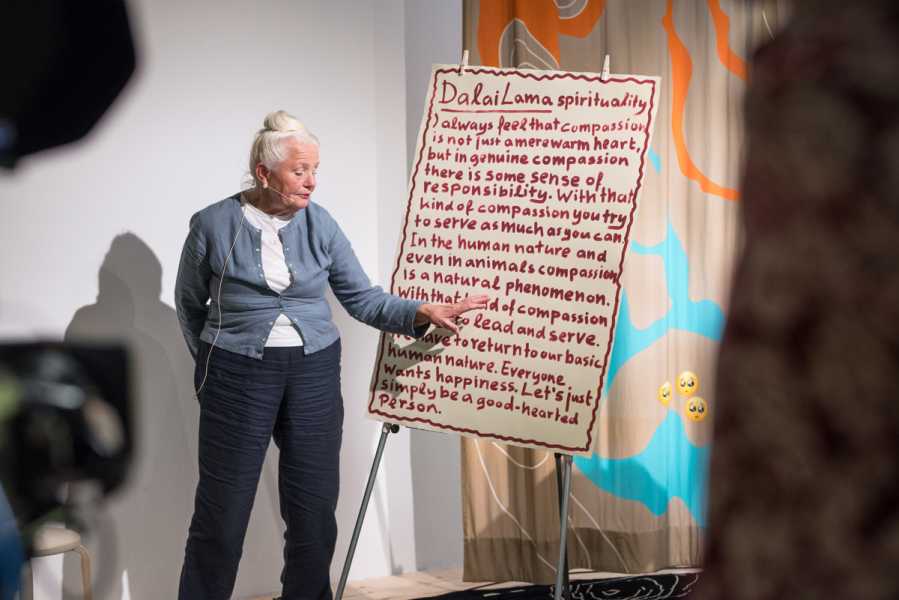 Dalai Lama spirituality
I always feel that compassion
is not just a mere warm heart,
but in genuine compassion
there is some sense of
responsibility. With that
kind of compassion you try
to serve as much as you can.
In the human nature and
even in animals compassion
is a natural phenomenon.
With that kind of compassion
to lead and serve.
have to return to our basic
human nature. Everyone
wants happiness. Let's just
simply be a good-hearted
Person.